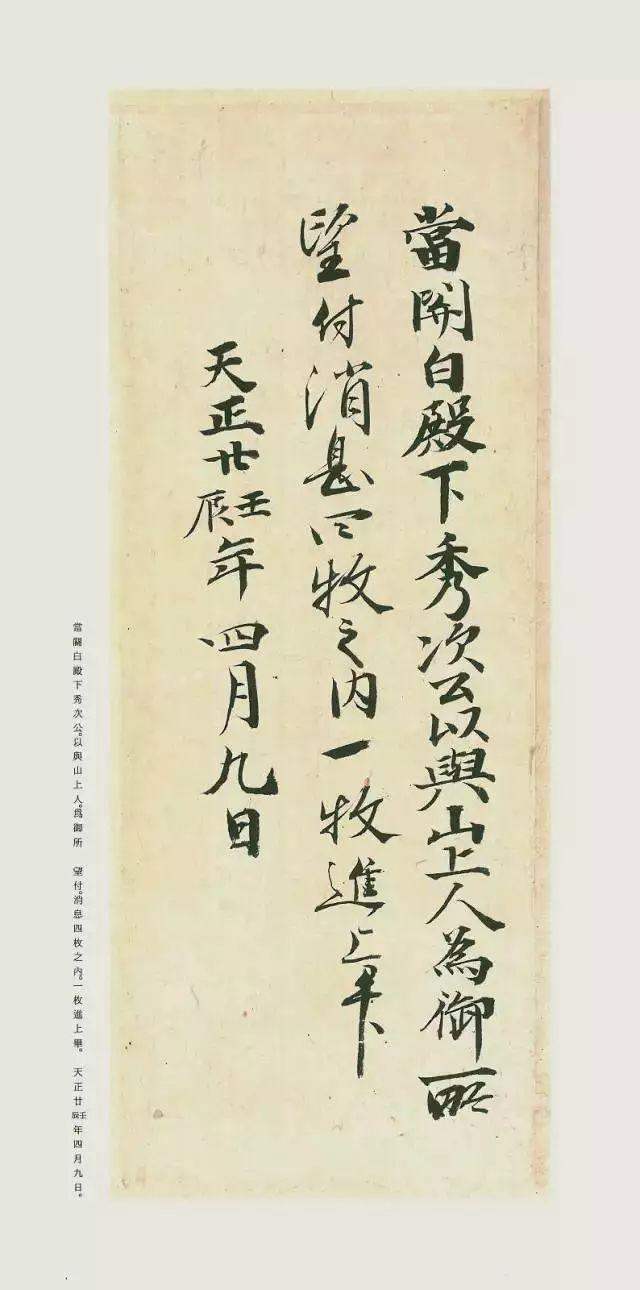 當關白殿下秀次公以與山上人為御所
望付消息四枚之内一枚進上畢
天正廿壬辰年四月九日
當關白殿下秀次公。以與山上人。爲御所　望付。消息四枚之內。一枚進上畢。　天正廿壬辰年四月九日。